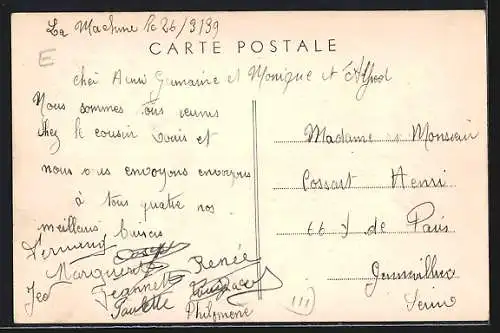 La Machine le 26/3/39
E
CARTE POSTALE
Germaine et Monique et Alfred
Nous sommes tous venus
chez le cousin Louis et
nous vous envoyons envoyons
à tous quatre nos
meilleurs baisers
Fernand Joseph
Marguerite Renée
Jeannette
Paulette Philomene
Madame Monsieur
Cossart Henri
66 de Paris
Gennevilliers
Seine